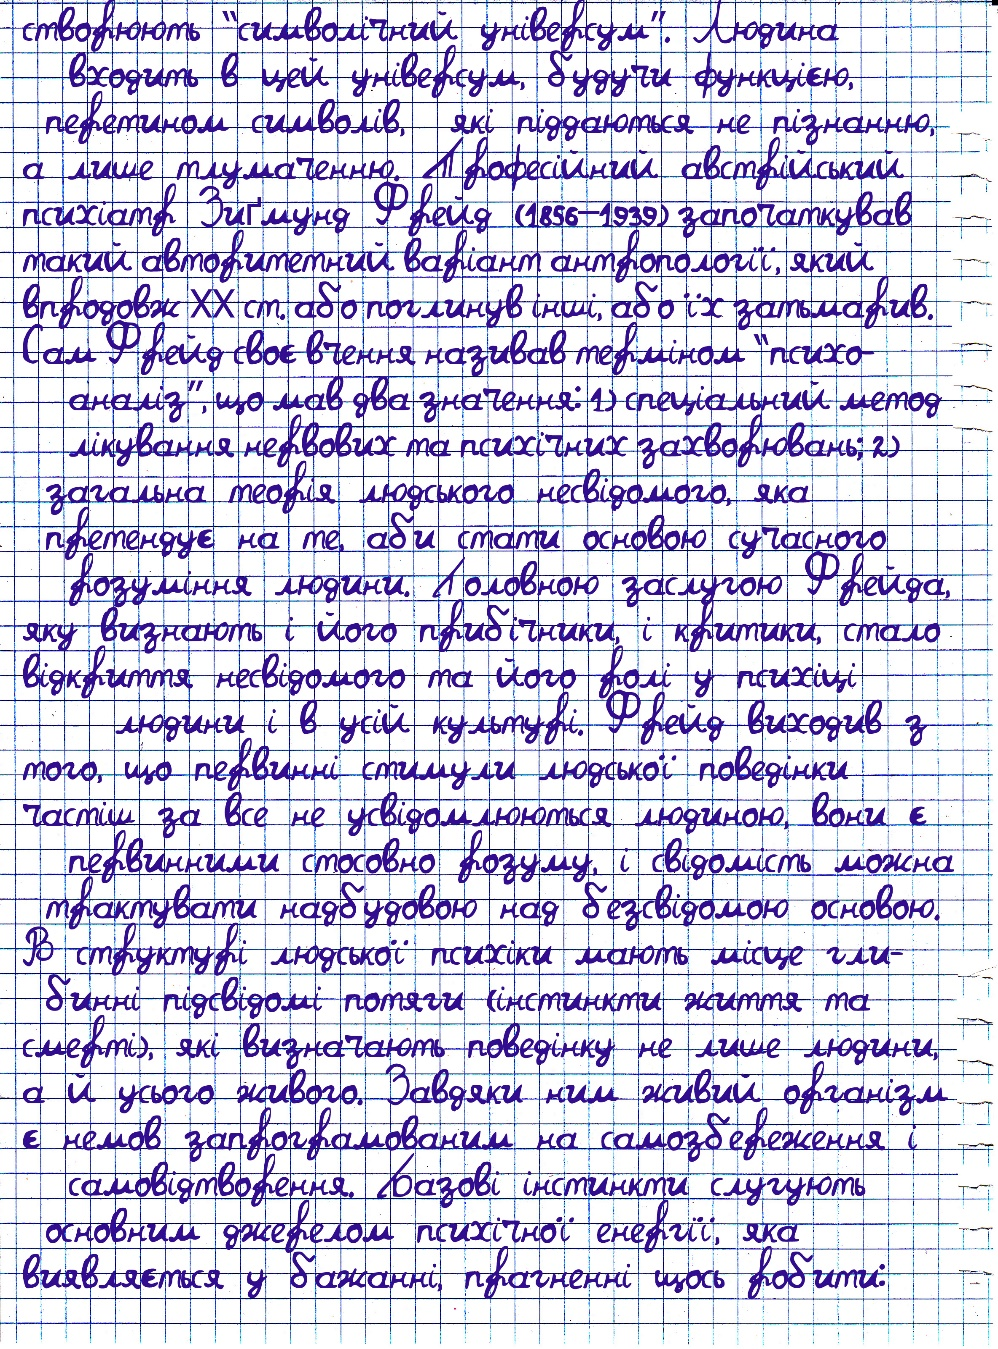 створюють “символічний універсум”. Людина
входить в цей універсум, будучи функцією,
перетином символів, які піддаються не пізнанню,
а лише тлумаченню. Професійний австрійський
психіатр Зиґмунд Фрейд (1856–1939) започаткував
такий авторитетний варіант антропології, який
впродовж XX ст. або поглинув інші, або їх затьмарив.
Сам Фрейд своє вчення називав терміном “психо-
аналіз”, що мав два значення: 1) спеціальний метод
лікування нервових та психічних захворювань; 2)
загальна теорія людського несвідомого, яка
претендує на те, аби стати основою сучасного
розуміння людини. Головною заслугою Фрейда,
яку визнають і його прибічники, і критики, стало
відкриття несвідомого та його ролі у психіці
людини і в усій культурі. Фрейд виходив з
того, що первинні стимули людської поведінки
частіш за все не усвідомлюються людиною, вони є
первинними стосовно розуму, і свідомість можна
трактувати надбудовою над безсвідомою основою.
В структурі людської психіки мають місце гли-
бинні підсвідомі потяги (інстинкти життя та
смерті), які визначають поведінку не лише людини,
а й усього живого. Завдяки ним живий організм
є немов запрограмованим на самозбереження і
самовідтворення. Базові інстинкти слугують
основним джерелом психічної енергії, яка
виявляється у бажанні, прагненні щось робити: